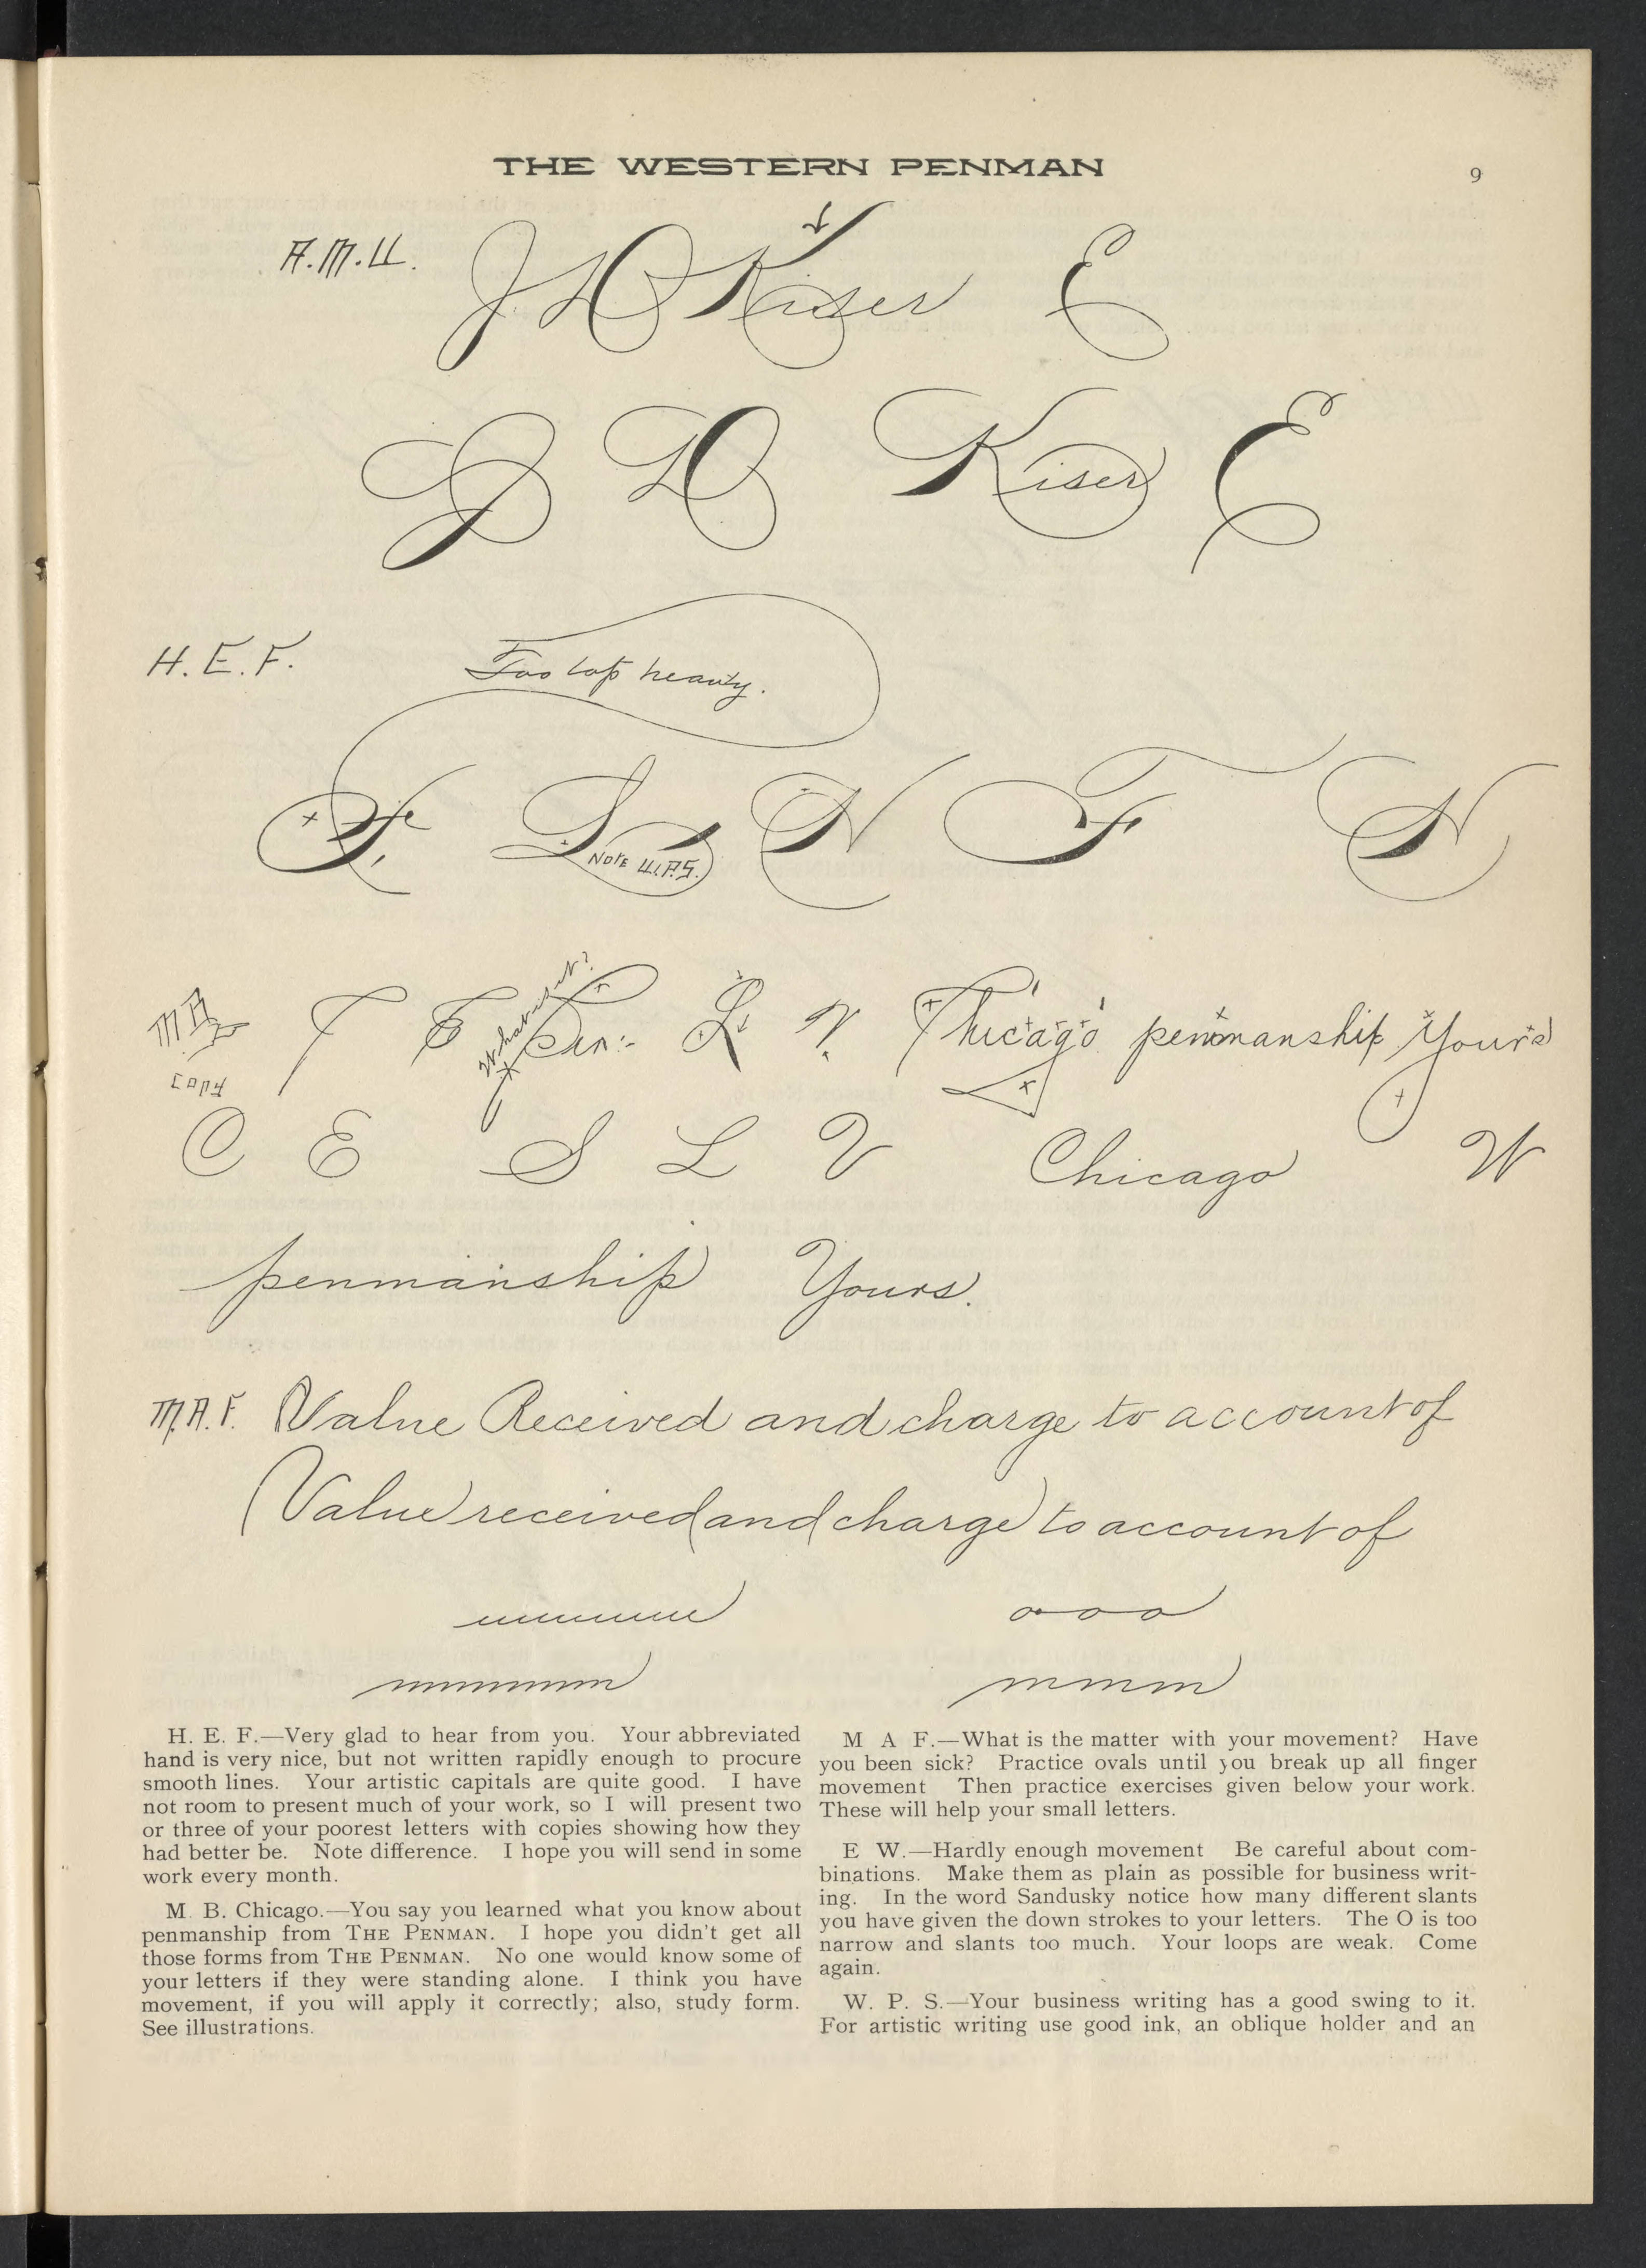 THE WESTERN PENMAN
9
A. M. U.
J D Kiser E
J D Kiser E
H. E. F.
Too top heavy.
F. S N F N
Note W.P.S.
copy
What is it?
Chicago penmanship Yours
C E S L V Chicago W
penmanship Yours.
M. A. F. Value Received and charge to account of
Value received and charge to account of
H. E. F.—Very glad to hear from you. Your abbreviated
hand is very nice, but not written rapidly enough to procure
smooth lines. Your artistic capitals are quite good. I have
not room to present much of your work, so I will present two
or three of your poorest letters with copies showing how they
had better be. Note difference. I hope you will send in some
work every month.
M B. Chicago.—You say you learned what you know about
penmanship from THE PENMAN. I hope you didn't get all
those forms from THE PENMAN. No one would know some of
your letters if they were standing alone. I think you have
movement, if you will apply it correctly; also, study form.
See illustrations.
M A F.—What is the matter with your movement? Have
you been sick? Practice ovals until you break up all finger
movement Then practice exercises given below your work.
These will help your small letters.
E W.—Hardly enough movement Be careful about com-
binations. Make them as plain as possible for business writ-
ing. In the word Sandusky notice how many different slants
you have given the down strokes to your letters. The O is too
narrow and slants too much. Your loops are weak. Come
again.
W. P. S.—Your business writing has a good swing to it.
For artistic writing use good ink, an oblique holder and an